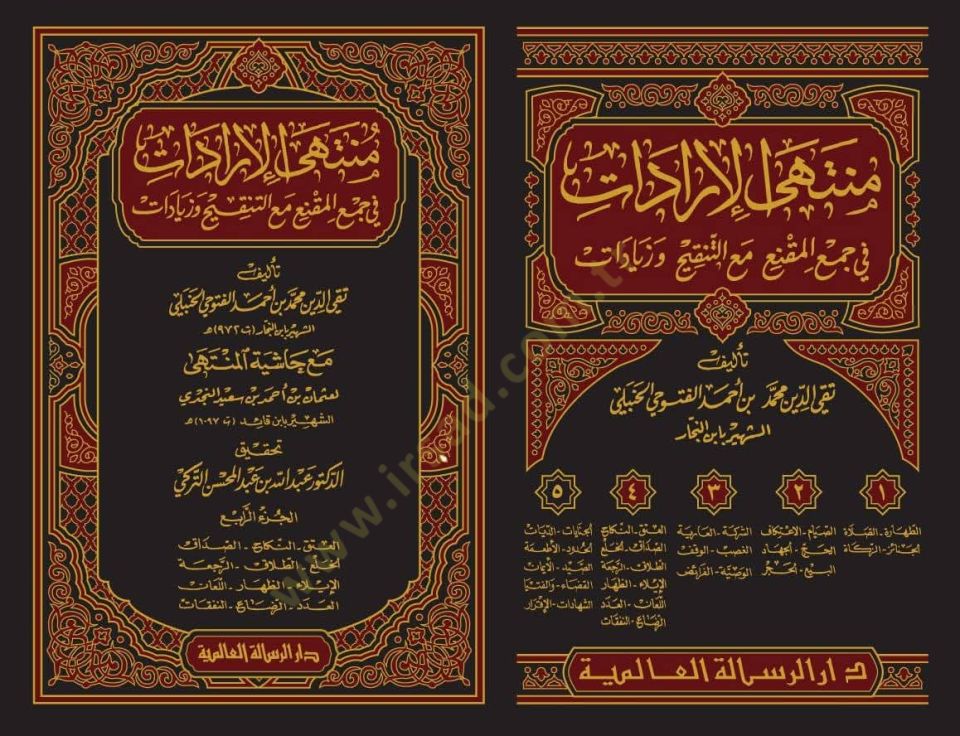 منتهى الإرادات
في جمع المقنع مع التنقيح وزيادات
تأليف
تقي الدين محمد بن أحمد الفتوحي الحنبلي
الشهير بابن النجار
١
الطهارة - الصلاة
الجنائز - الزكاة
٢
الصيام - الاعتكاف
الحج - الجهاد
البيع - الحجر
٣
الشركة - العارية
الغصب - الوقف
الوصية - الفرائض
٤
العتق - النكاح
الصداق - الخلع
الطلاق - الرجعة
الإيلاء - الظهار
اللعان - العدد
الرضاع - النفقات
٥
الجنايات - الديات
الحدود - الأطعمة
الصيد - الأيمان
القضاء - والفتيا
الشهادات - الإقرار
دار الرسالة العالمية
منتهى الإرادات
في جمع المقنع مع التنقيح وزيادات
تأليف
تقي الدين محمد بن أحمد الفتوحي الحنبلي
الشهير بابن النجار (ت ٩٧٢) هـ
مع حاشية المنتهى
لعثمان بن أحمد بن سعيد النجدي
الشهير بابن قائد (ت ١٠٩٧) هـ
تحقيق
الدكتور عبد الله بن عبد المحسن التركي
الجزء الرابع
العتق - النكاح - الصداق
الخلع - الطلاق - الرجعة
الإيلاء - الظهار - اللعان
العدد - الرضاع - النفقات
دار الرسالة العالمية